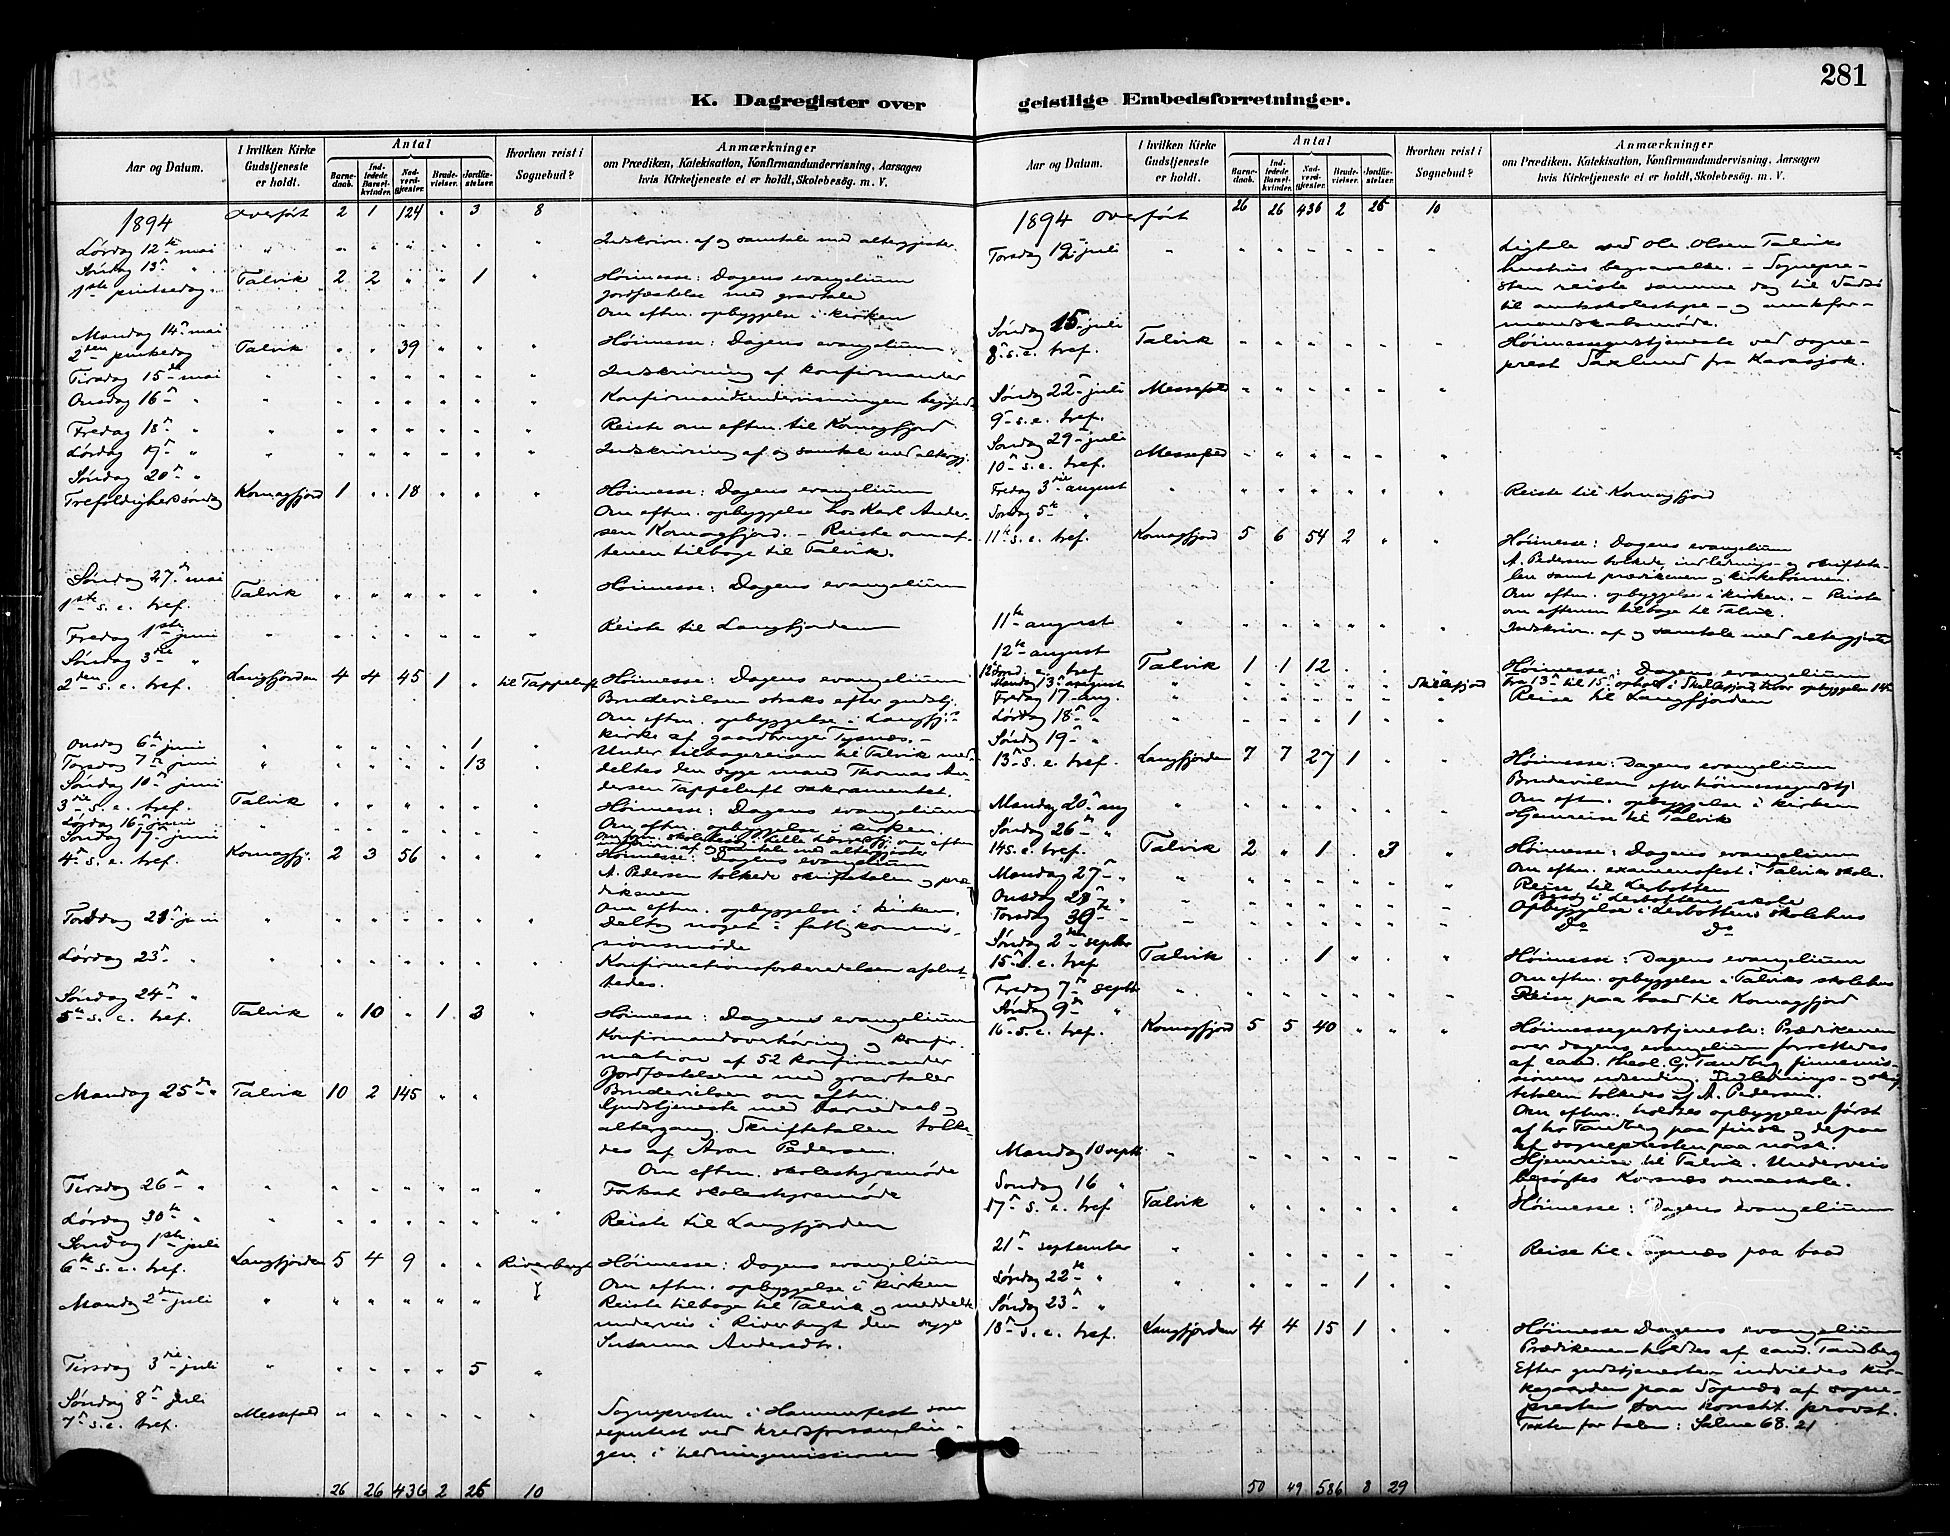 281
K. Dagregister over geistlige Embedsforretninger.
Aar og Datum. I hvilken Kirke Gudstjeneste er holdt. Antal Barnedaab. Indledede Barselkvinder. Nadverdgjester. Brudevielser. Jordfæstelser. Hvorhen reist i Sognebud? Anmærkninger om Prædiken, Katekisation, Konfirmandundervisning, Aarsagen hvis Kirketjeneste ei er holdt, Skolebesøg. m. V.
1894 overført 2 1 124 " 3 8
Lørdag 12te mai " " " " " " " Indskrivn. af og samtale med altergjester
Søndag 13de "
1ste pintsedag Talvik 2 2 " " 1 " Høimesse: Dagens evangelium
Jordfæstelse med gravtale
Om eftm. opbyggelse i kirken
Mandag 14de mai
2den pintsedag Talvik " " 39 " " " Høimesse: Dagens evangelium
Tirsdag 15de mai " " " " " " " Indskrivning af konfirmander
Onsdag 16de " " " " " " " " Konfirmandundervisningen begynd.
Fredag 18de " " " " " " " " Reiste om eftm. til Komagfjord
Lørdag 19de " " " " " " " " Indskrivning af og samtale med altergj.
Søndag 20de "
Trefoldighedssøndag Komagfjord 1 " 18 " " " Høimesse: Dagens evangelium
Om eftm. opbyggelse hos Karl Ander-
sen Komagfjord. – Reiste om af-
tenen tilbage til Talvik.
Søndag 27de mai
1ste s. e. tref. Talvik " " " " " " Høimesse: Dagens evangelium
Fredag 1ste juni " " " " " " " Reiste til Langfjorden
Søndag 3die "
2den s. e. tref. Langfjorden 4 4 45 1 " til Tappeluft Høimesse: Dagens evangelium
Brudevielsen straks efter gudstj.
Om eftm. opbyggelse i Langfj.
kirke af gaardbruger Tysnæs. –
Onsdag 6te juni " " " " " 1 " Under tilbagereisen til Talvik med-
Torsdag 7de juni " " " " " 13 " deltes den syge mand Thomas An-
dersen Tappeluft sakramentet.
Søndag 10de juni
3die s. e. tref. Talvik " " " " " " Høimesse: Dagens evangelium
Om eftm. opbyggelse i kirken.
Lørdag 16de juni " " " " " " "
Søndag 17de juni
4de s. e. tref. Komagfj. 2 3 56 " " " Høimesse: Dagens evangelium
A. Pedersen tolkede skriftetalen og præ-
dikenen
Om eftm. opbyggelse i kirken.
Torsdag 21de juni " " " " " " " Deltog noget i fattigkommis-
sionsmøde
Lørdag 23de " " " " " " " " Konfirmationsforberedelsen afslut-
tedes.
Søndag 24de "
5te s. e. tref. Talvik " 10 " 1 3 " Høimesse: Dagens evangelium
Konfirmandoverhøring og konfir-
mation af 52 konfirmander
Jordfæstelserne med gravtaler
Brudevielsen om eftm.
Mandag 25de " Talvik 10 2 145 " " Gudstjeneste med barnedaab og
altergang. Skriftetalen tolke-
des af Aron Pedersen.
Om eftm. skolestyremøde
Tirsdag 26de " " " " " " " " Forksat skolestyremøde
Lørdag 30te " " " " " " " " Reiste til Langfjorden
Søndag 1ste juli
6te s. e. tref. Langfjorden 5 4 9 " " Riverbugt Høimesse: Dagens evangelium
Om eftm. opbyggelse i kirken
Mandag 2den juli " " " " " " " Reiste tilbage til Talvik og meddelte
underveis i Riverbugt den syge
Susanna Andersdtr.
Tirsdag 3die juli " " " " " 5 "
Søndag 8de juli
7de s. e. tref. Messefald " " " " " " Sognepresten i Hammerfest som
deputeret ved kredsforsamlin-
gen i hedningemissionen
26 26 436 2 25 10
Aar og Datum. I hvilken Kirke Gudstjeneste er holdt. Antal Barnedaab. Indledede Barselkvinder. Nadverdgjester. Brudevielser. Jordfæstelser. Hvorhen reist i Sognebud? Anmærkninger om Prædiken, Katekisation, Konfirmandundervisning, Aarsagen hvis Kirketjeneste ei er holdt, Skolebesøg. m. V.
1894 overført 26 26 436 2 25 10
Torsdag 12te juli " " " " " " " Ligtale ved Ole Olsen Talviks
hustrus begravelse. – Sognepre-
sten reiste samme dag til Vadsø
til amtsskolestyre- og
mandskabsmøde.
Søndag 15 juli
8de s. e. tref. Talvik " " " " " " Høimessegudstjeneste ved sogne-
prest Saxlund fra Karasjok.
Søndag 22 juli Messefald " " " " " "
9de s. e. tref.
Søndag 29 juli
10de s. e. tref. Messefald " " " " " "
Fredag 3die august " " " " " " " Reiste til Komagfjord
Søndag 5te "
11te s. e. tref. Komagfjord 5 6 54 2 " " Høimesse: Dagens evangelium
A. Pedersen tolkede indlednings- og skrifteta-
len samt prædikenen og kirkebønnen.
Om eftm. opbyggelse i kirken. – Reiste
om aftenen tilbage til Talvik.
11te august " " " " " " " Indskrivn. af og samtale med altergjester
12te august
12te s. e. tref Talvik 1 1 12 " " " Høimesse: Dagens evangelium
Mandag 13de august " " " " " " Skillefjord Fra 13de til 15de ophold i Skillefjord, hvor opbyggelse 14de
Fredag 17 aug. " " " " " " " Reise til Langfjorden
Lørdag 18de " " " " " 1 " "
Søndag 19de "
13de s. e. tref. Langfjorden 7 7 27 1 " " Høimesse: Dagens evangelium
Brudevielsen efter høimessegudstj.
Om eftm. opbyggelse i kirken
Mandag 20de aug " " " " " " Hjemreise til Talvik
Søndag 26de "
14 s. e. tref. Talvik 2 " 1 " 3 " Høimesse: Dagens evangelium
Om eftm. examensfest i Talviks skole.
Mandag 27de " " " " " " " " Reise til Lerbotten
Onsdag 28de " " " " " " " " Besøg i Lerbottens skole
Torsdag 30te " " " " " " " " Opbyggelse i Lerbottens skolehus
Do Do
Søndag 2den septbr
15de s. e. tref Talvik " " 1 " " " Høimesse: Dagens evangelium
Om eftm. opbyggelse i Talviks skolehus
Fredag 7de septb. " " " " " " " Reise paa baad til Komagfjord
Søndag 9de "
16de s. e. tref. Komagfjord 5 5 40 " " " Høimessegudstjeneste: Prædikenen
over dagens evangelium forrettedes
af cand. theol. G. Tandberg finnemis-
sionens udsending. Indlednings- og skrif-
tetalen tolkedes af A. Pedersen.
Om eftm. holdtes opbyggelse først
af hr Tandberg paa finsk og depaa
af sognepresten paa norsk.
Mandag 10 septb. " " " " " " " Hjemreise til Talvik. Underveis
besøgtes Korsnæs smaaskole.
Søndag 16 "
17de s. e. tref Talvik " " " " " " Høimesse: Dagens evangelium
21de september " " " " " " " Reise til Sopnæs paa baad
Lørdag 22de " " " " " 1 " "
Søndag 23de "
18de s. e. tref. Langfjorden 4 4 15 1 " " Høimesse Dagens evangelium
Prædikenen holdtes af cand. Tandberg
Efter gudstjenesten indviedes kir-
kegaarden paa Sopnæs af sogne-
presten som konst. provst.
Texten for talen: Salme 68.21
50 49 586 8 29